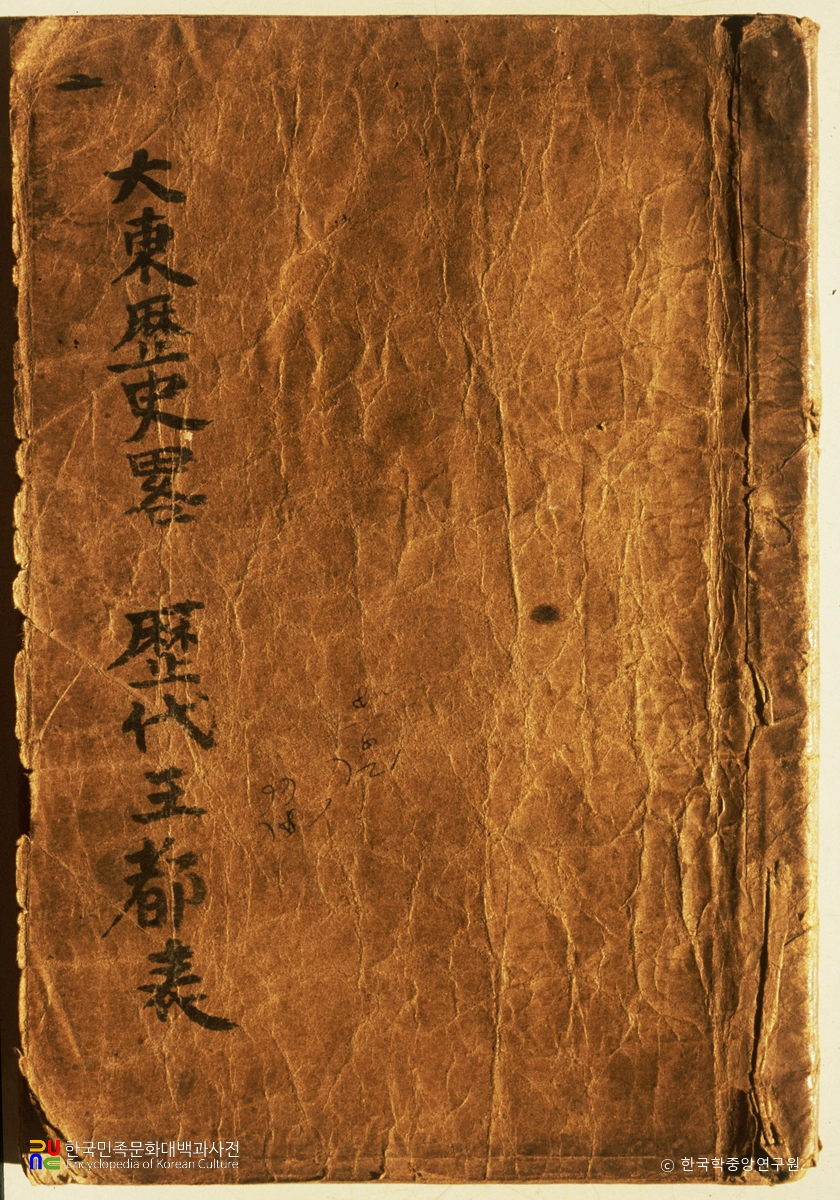 大東歷史畧 歷代王都表
한국민족문화대백과사전
Encyclopedia of Korean Culture
© 한국학중앙연구원